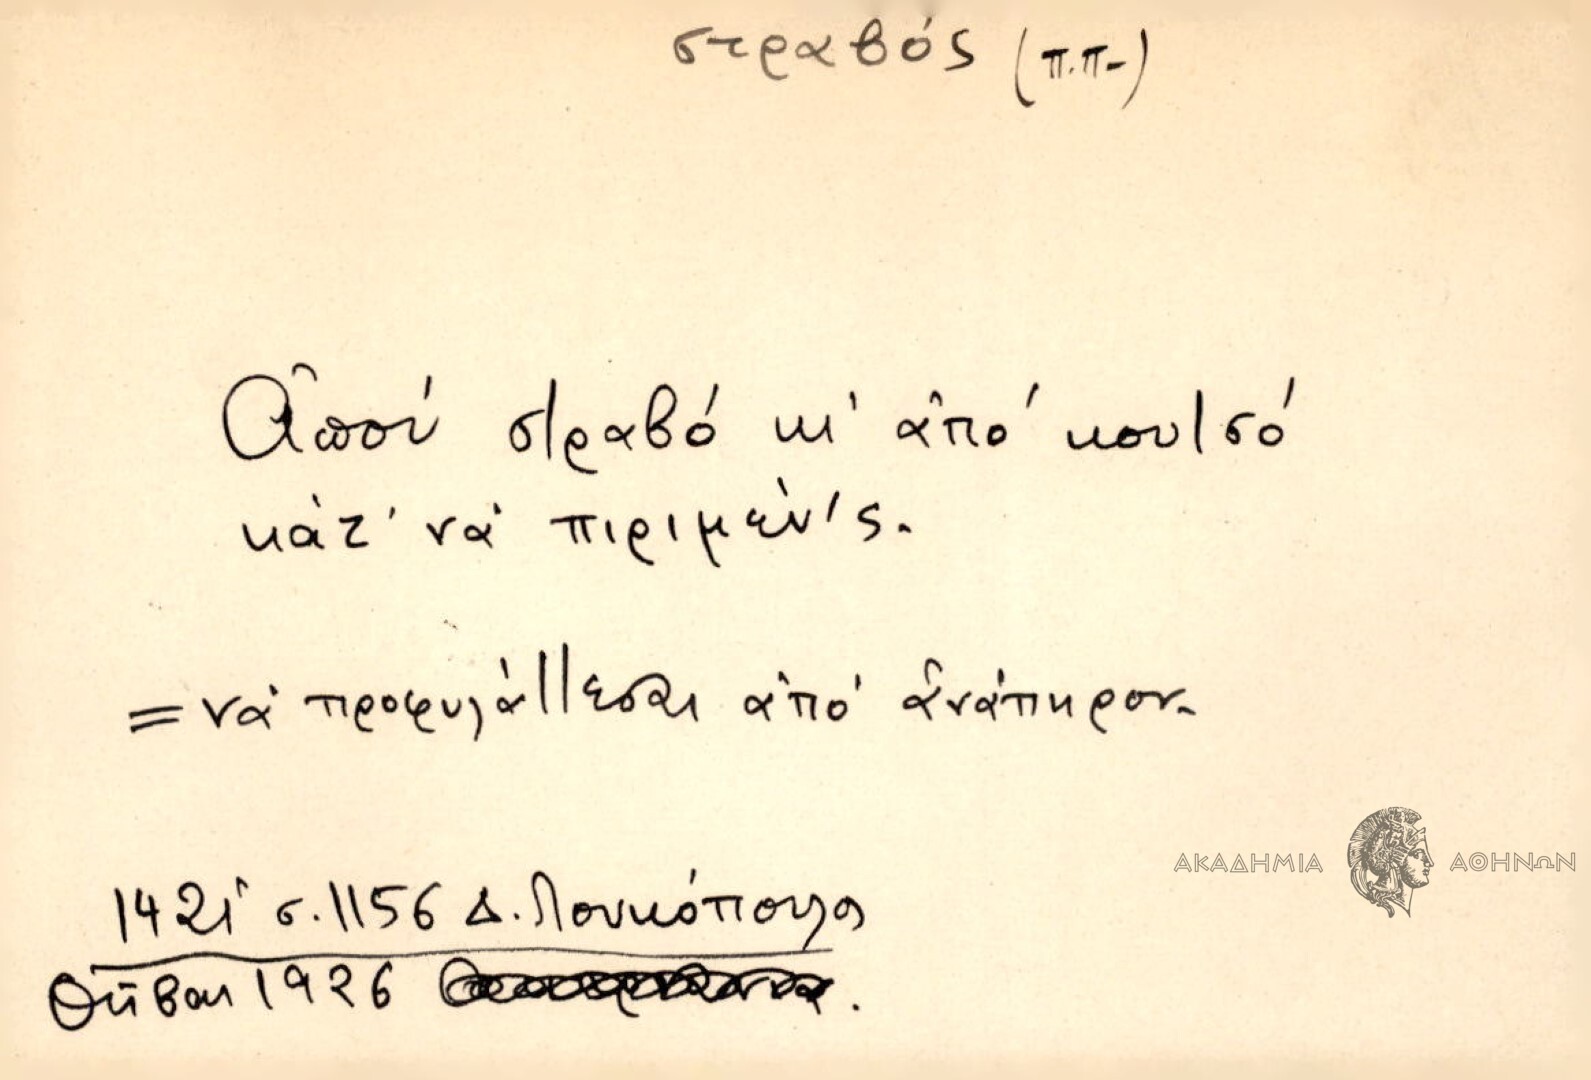 στραβός (π.π-)
Ἀπού στραβό κι' ἀπό κουτσό
κάτ' νά πιριμέν'ς.
= νά προφυλάττεσαι ἀπό ἀνάπηρον.
σ. 1156 Δ. Λουκόπουλο
Θῆβαι 1926
ΑΚΑΔΗΜΙΑ ΑΘΗΝΩΝ